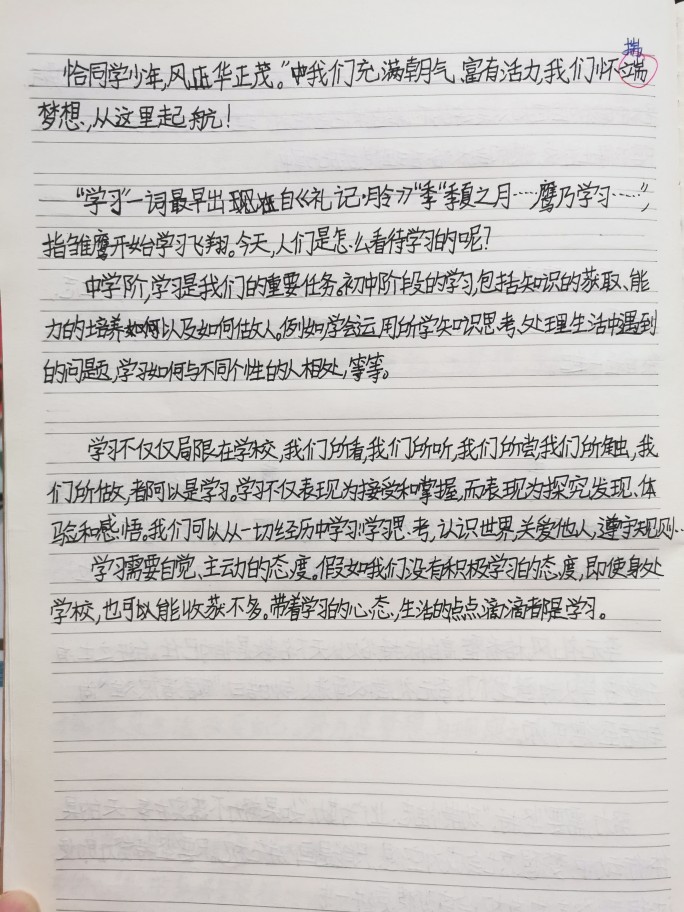 揣
恰同学少年,风正华正茂。"中我们充满朝气、富有活力,我们怀端
梦想,从这里起航!
"学习"一词最早出现在自《礼记·月令》"季"季夏之月……鹰乃学习……",
指雏鹰开始学习飞翔。今天,人们是怎么看待学习的呢?
中学阶,学习是我们的重要任务。初中阶段的学习,包括知识的获取、能
力的培养如何以及如何做人。例如,学会运用所学知识思考、处理生活中遇到
的问题,学习如何与不同个性的人相处,等等。
学习不仅仅局限在学校,我们所看,我们所听,我们所尝,我们所触,我
们所做,都可以是学习。学习不仅表现为接受和掌握,而表现为探究、发现、体
验和感悟。我们可以从一切经历中学习:学习思考,认识世界,关爱他人,遵守规则…
学习需要自觉、主动的态度。假如我们没有积极学习的态度,即使身处
学校,也可以能收获不多。带着学习的心态,生活的点点滴滴都是学习。